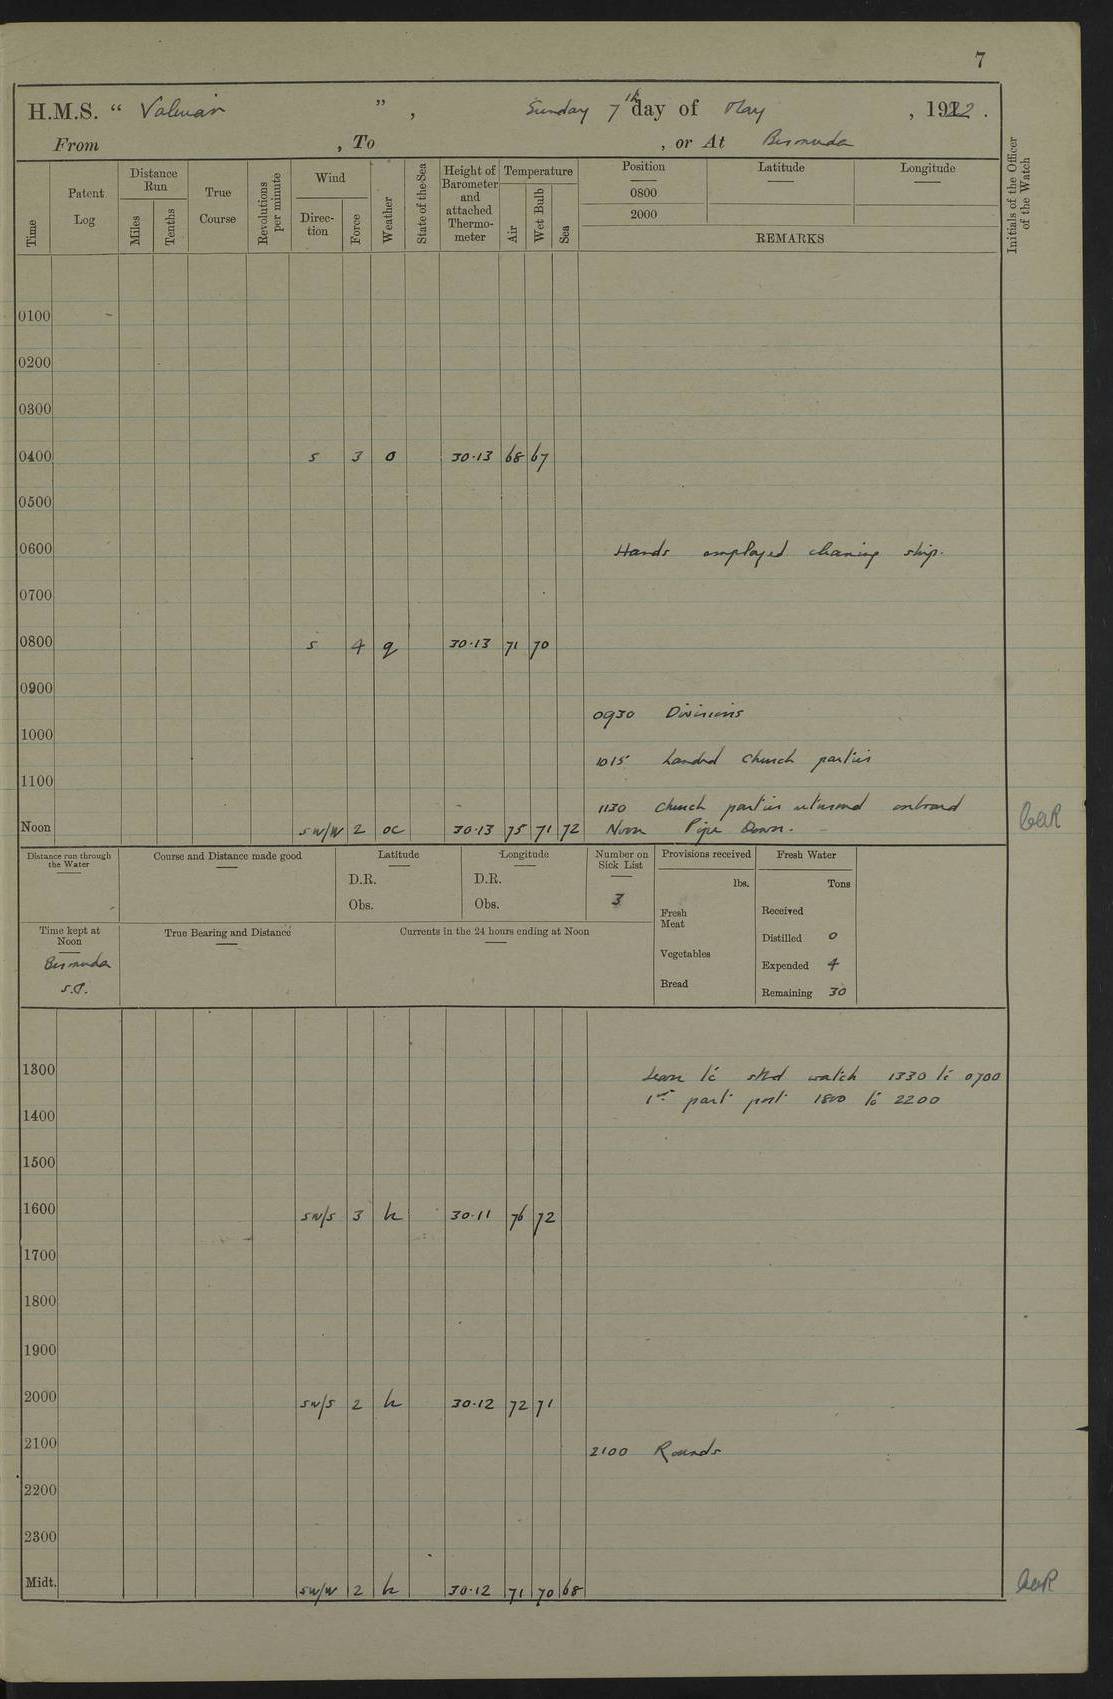 7
H.M.S. “ Valerian ” , Sunday 7th day of May , 1922 .
From , To , or At Bermuda
Time Patent Log Distance Run Miles Tenths True Course Revolutions per minute Wind Direc- tion Force Weather State of the Sea Height of Barometer and attached Thermo- meter Temperature Air Wet Bulb Sea Position Latitude Longitude
0800
2000
REMARKS
Initials of the Officer of the Watch
0100
0200
0300
0400 S 3 o 30·13 68 67
0500
0600 Hands employed cleaning ship.
0700
0800 S 4 q 30·13 71 70
0900
0930 Divisions
1000
1015 Landed Church parties
1100
1130 Church parties returned onboard
Noon SW/W 2 oc 30·13 75 71 72 Noon Pipe Down.
Distance run through the Water Course and Distance made good Latitude Longitude Number on Sick List Provisions received Fresh Water
D.R. D.R. lbs. Tons
Obs. Obs. 3 Fresh Meat Received
Time kept at Noon True Bearing and Distance Currents in the 24 hours ending at Noon Distilled 0
Bermuda Vegetables Expended 4
Bread Remaining 30
1300 Leave to stbd watch 1330 to 0700
1st part port 1800 to 2200
1400
1500
1600 SW/S 3 b 30·11 76 72
1700
1800
1900
2000 SW/S 2 b 30·12 72 71
2100 2100 Rounds
2200
2300
Midt. SW/W 2 b 30·12 71 70 68